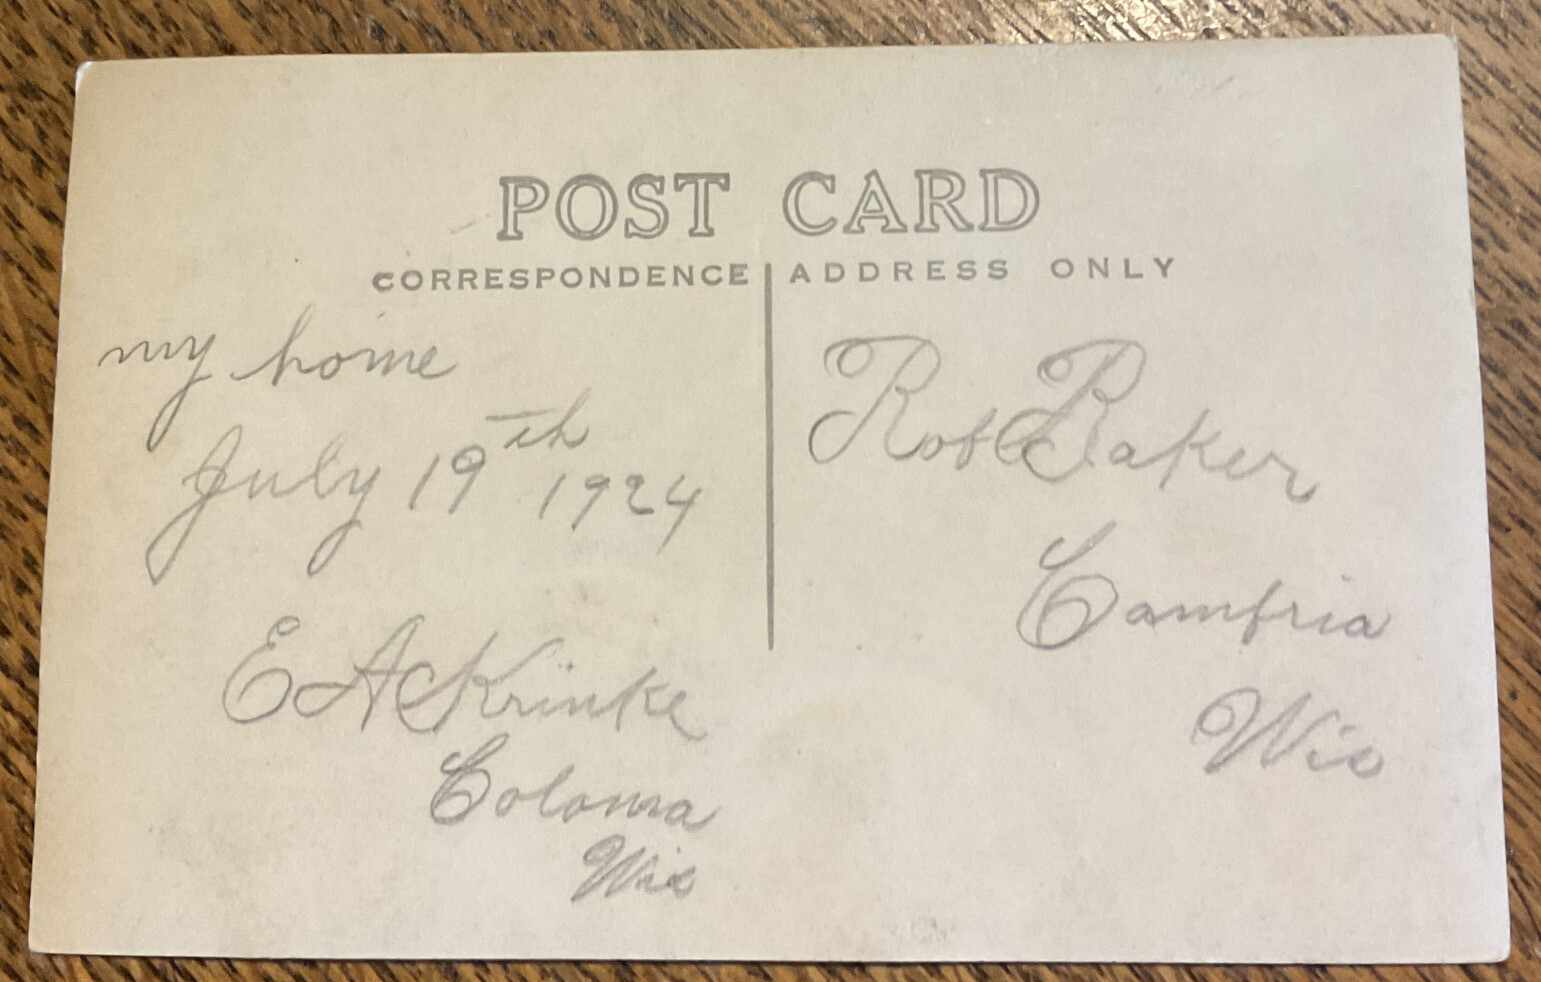 POST CARD
CORRESPONDENCE ADDRESS ONLY
my home
July 19th 1924
E A Krinke
Coloma
Wis
Rob Baker
Cambria
Wis